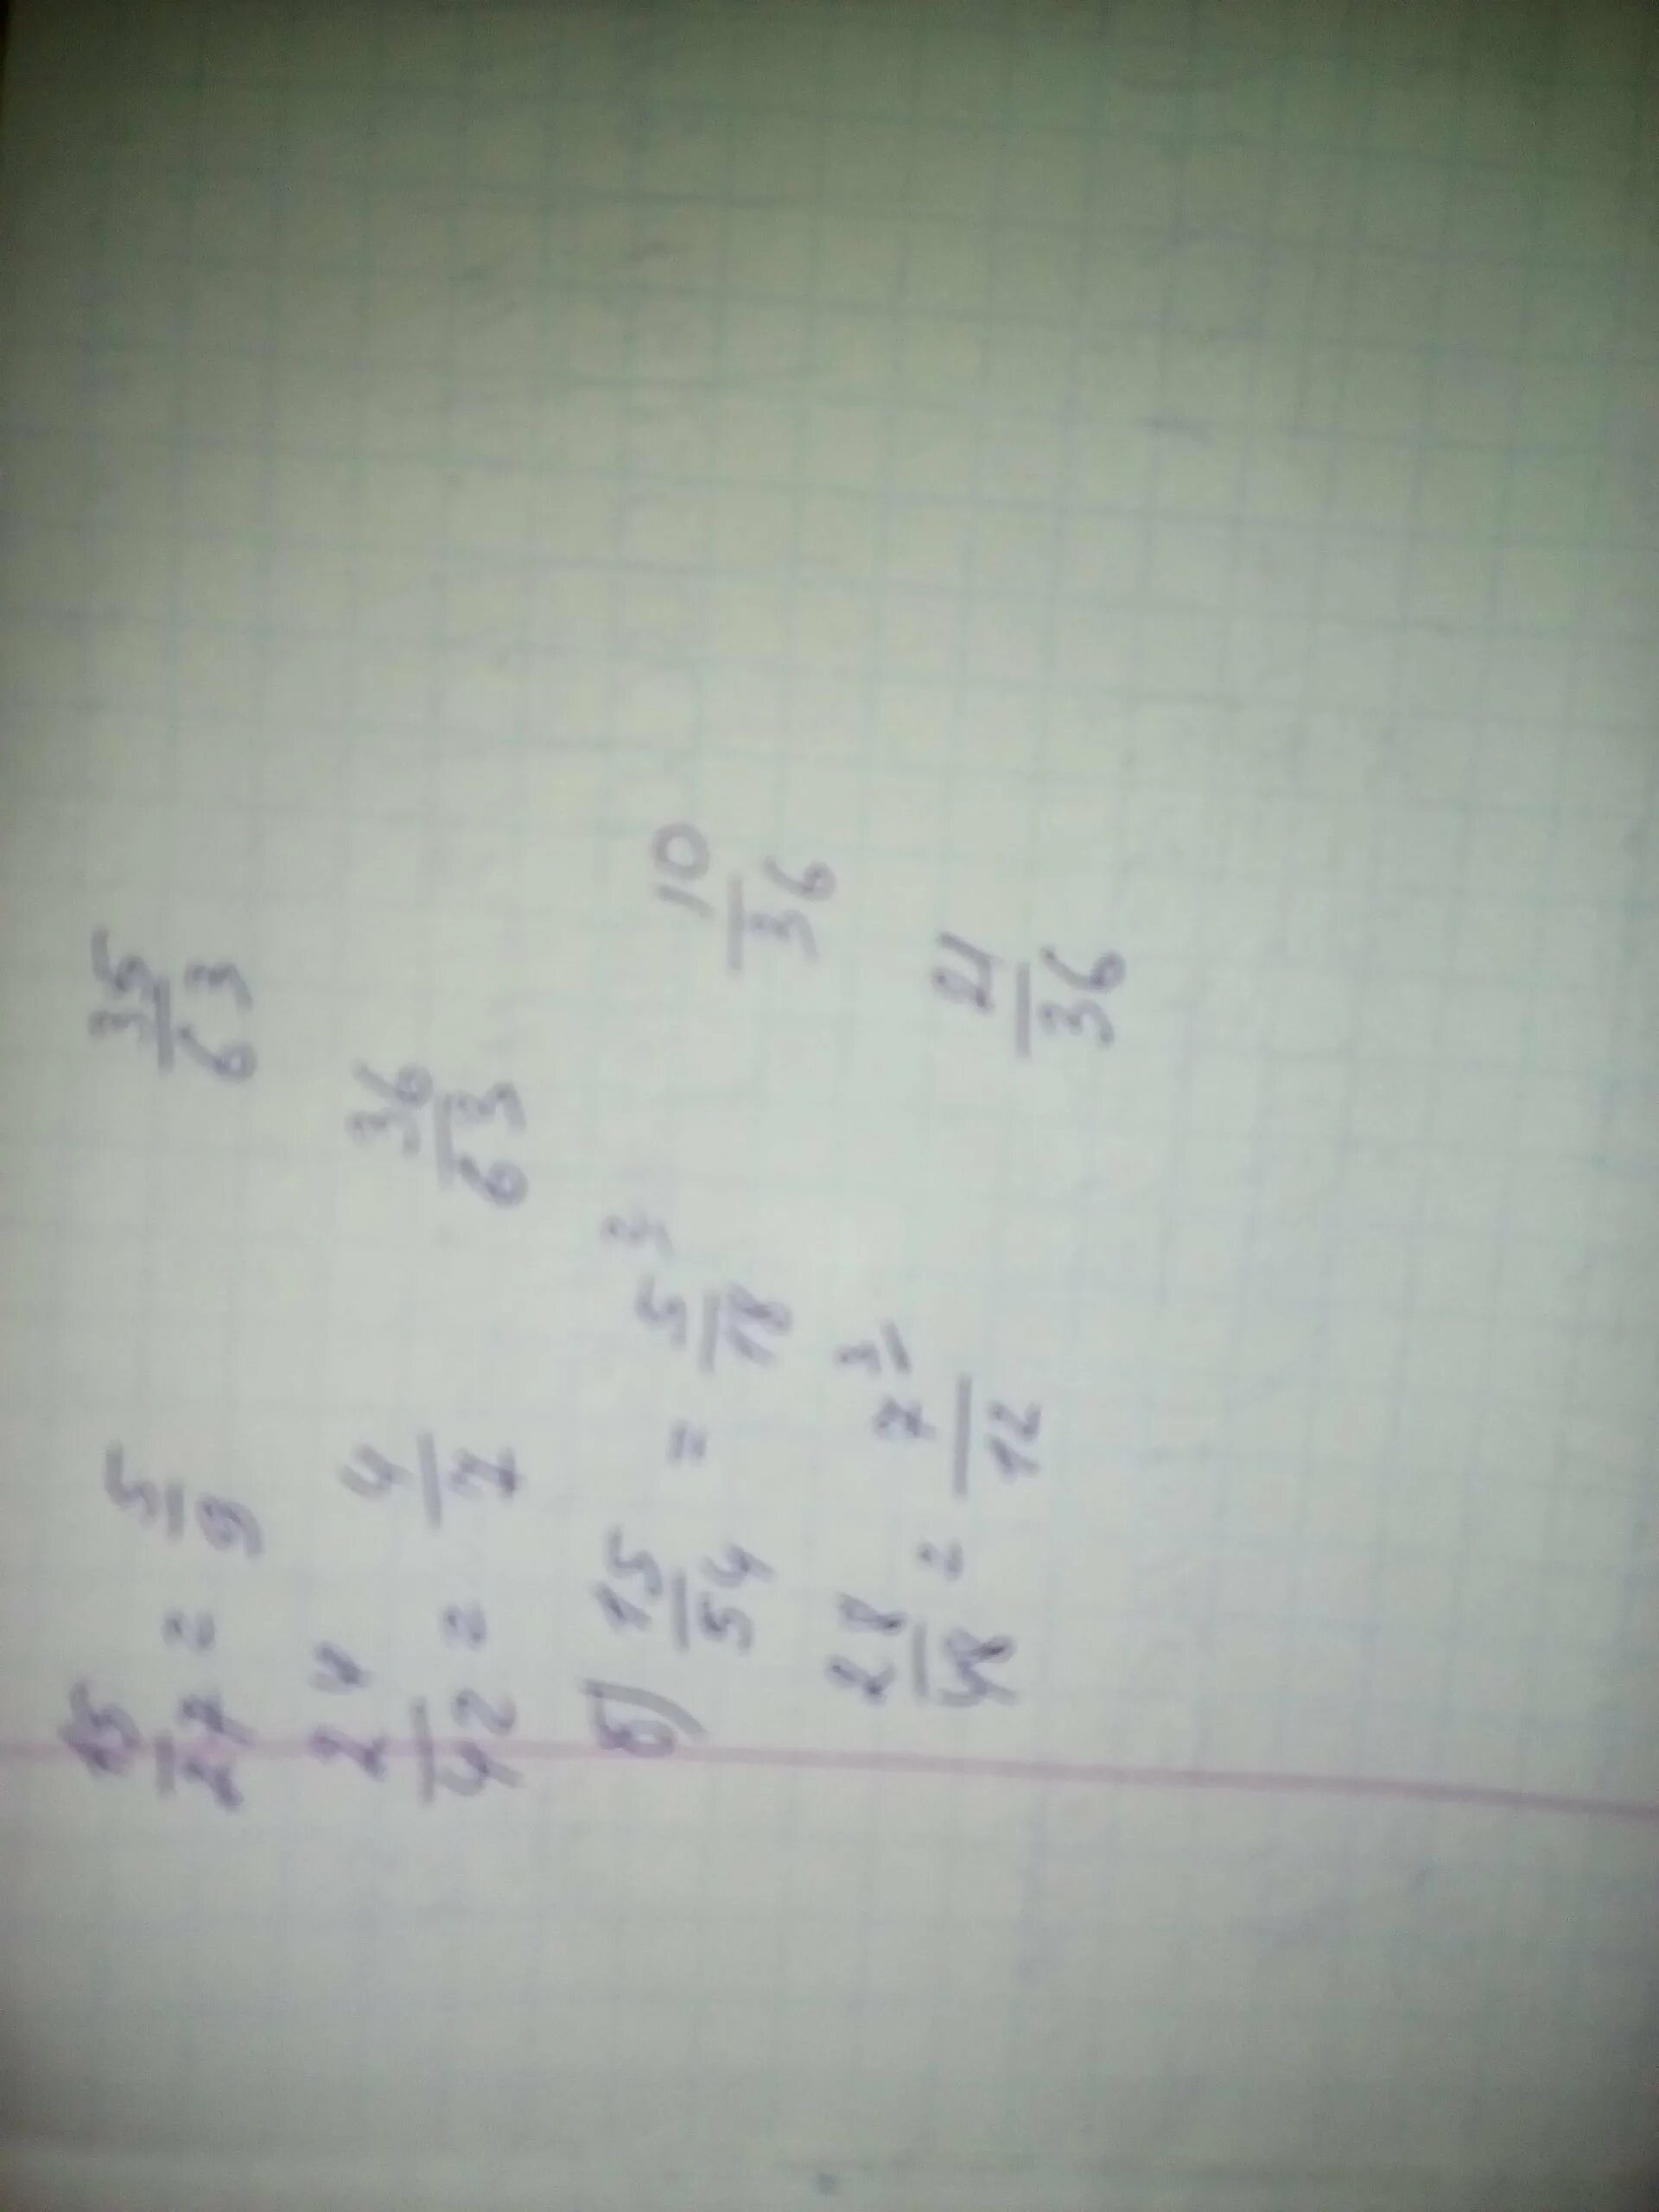 15/27 = 5/9 35/63
24/42 = 4/7 36/63
б) 15/54 = 5/18 10/36
28/48 = 7/12 21/36